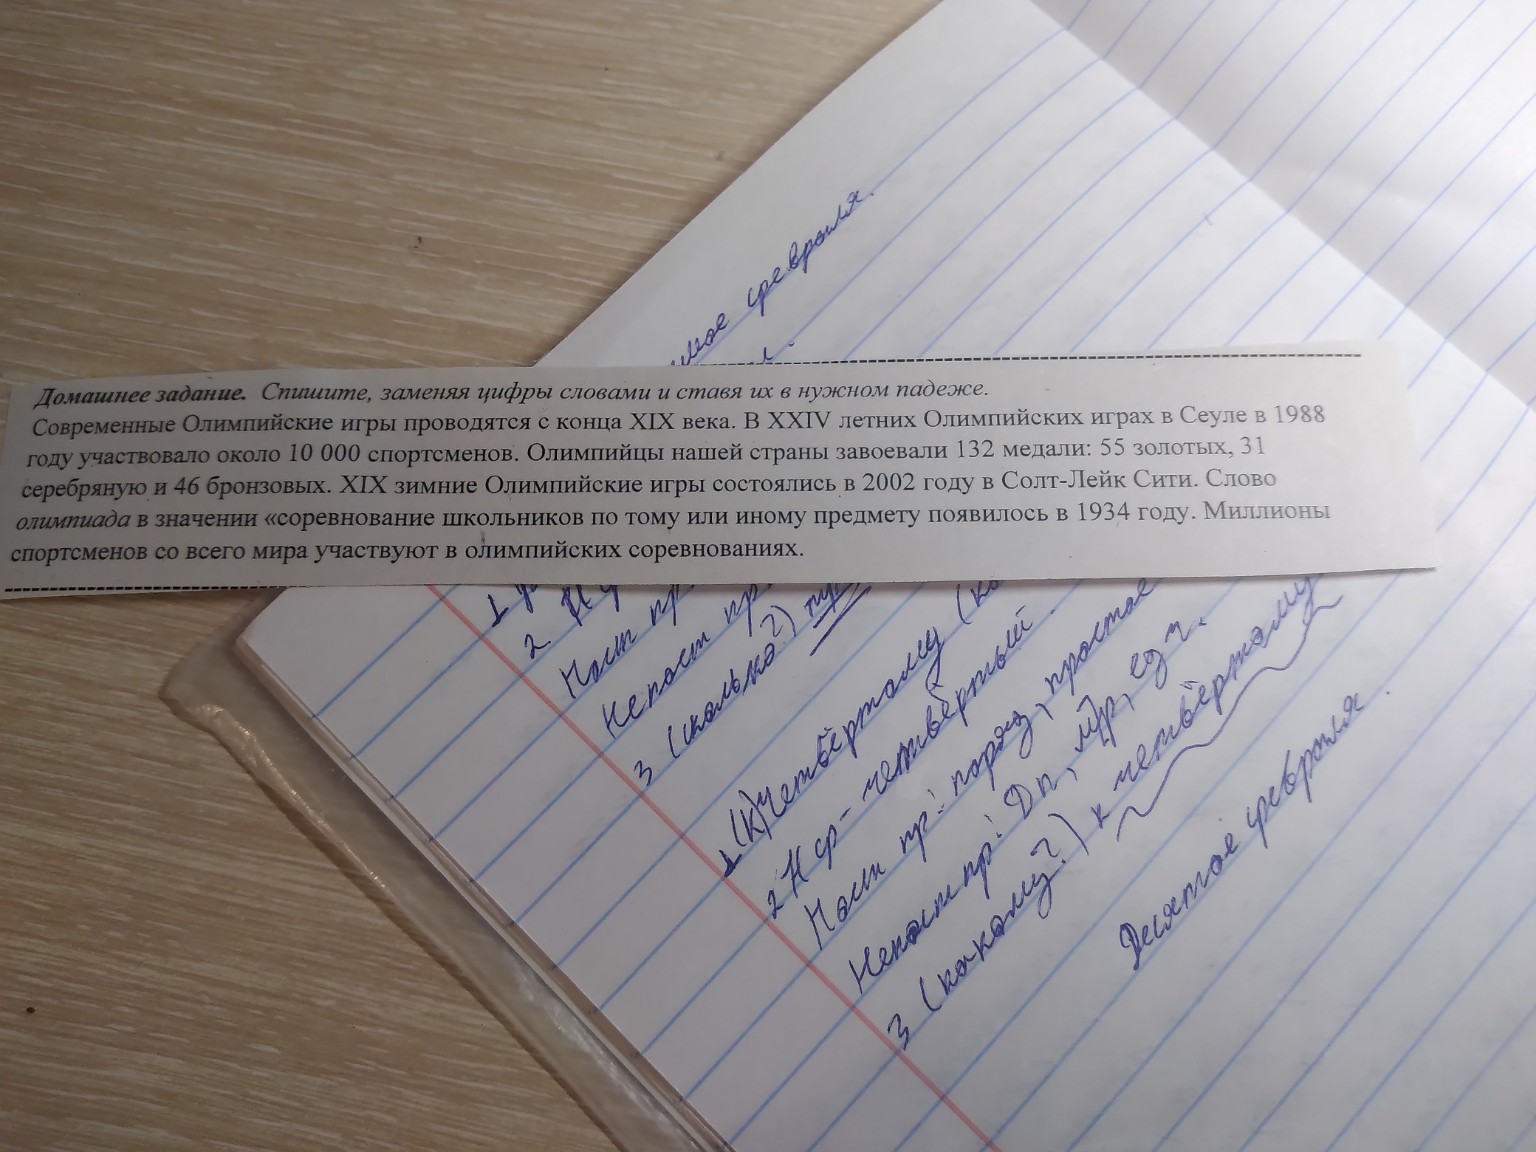 февраля.
Домашнее задание. Спишите, заменяя цифры словами и ставя их в нужном падеже.
Современные Олимпийские игры проводятся с конца XIX века. В XXIV летних Олимпийских играх в Сеуле в 1988
году участвовало около 10 000 спортсменов. Олимпийцы нашей страны завоевали 132 медали: 55 золотых, 31
серебряную и 46 бронзовых. XIX зимние Олимпийские игры состоялись в 2002 году в Солт-Лейк Сити. Слово
олимпиада в значении «соревнование школьников по тому или иному предмету появилось в 1934 году. Миллионы
спортсменов со всего мира участвуют в олимпийских соревнованиях.
1
2 Н
Пост пр
Непост пр
3 (сколько?)
1 (К) четвёртому
2 Н ф - четвёртый.
Пост пр: поряд, простое
Непост пр: Д п, м р, ед ч.
3 (какому?) к четвёртому
Десятое февраля.